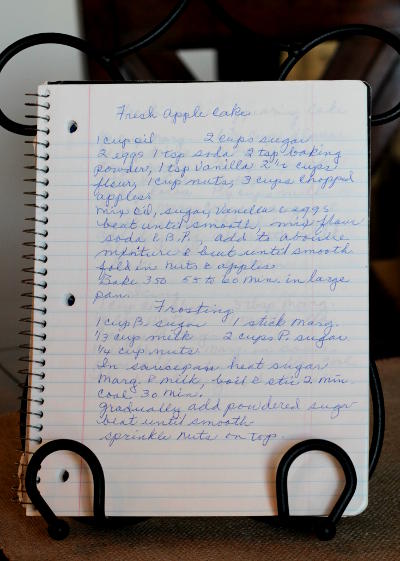 Fresh Apple Cake
1 cup oil 2 cups sugar
2 eggs 1 tsp soda 2 tsp baking
powder, 1 tsp vanilla 2 1/2 cups
flour, 1 cup nuts, 3 cups chopped
apples.
mix oil, sugar, vanilla & eggs
beat until smooth, mix flour
soda & B.P., add to above
mixture & beat until smooth
fold in nuts & apples.
Bake 350 55 to 60 min. in large
pan.
Frosting
1 cup B. sugar 1 stick marg.
1/3 cup milk 2 cups P. sugar
1/4 cup nuts
In saucepan heat sugar
marg. & milk, boil & stir 2 min.
cool 30 min.
gradually add powdered sugar
beat until smooth
sprinkle nuts on top.